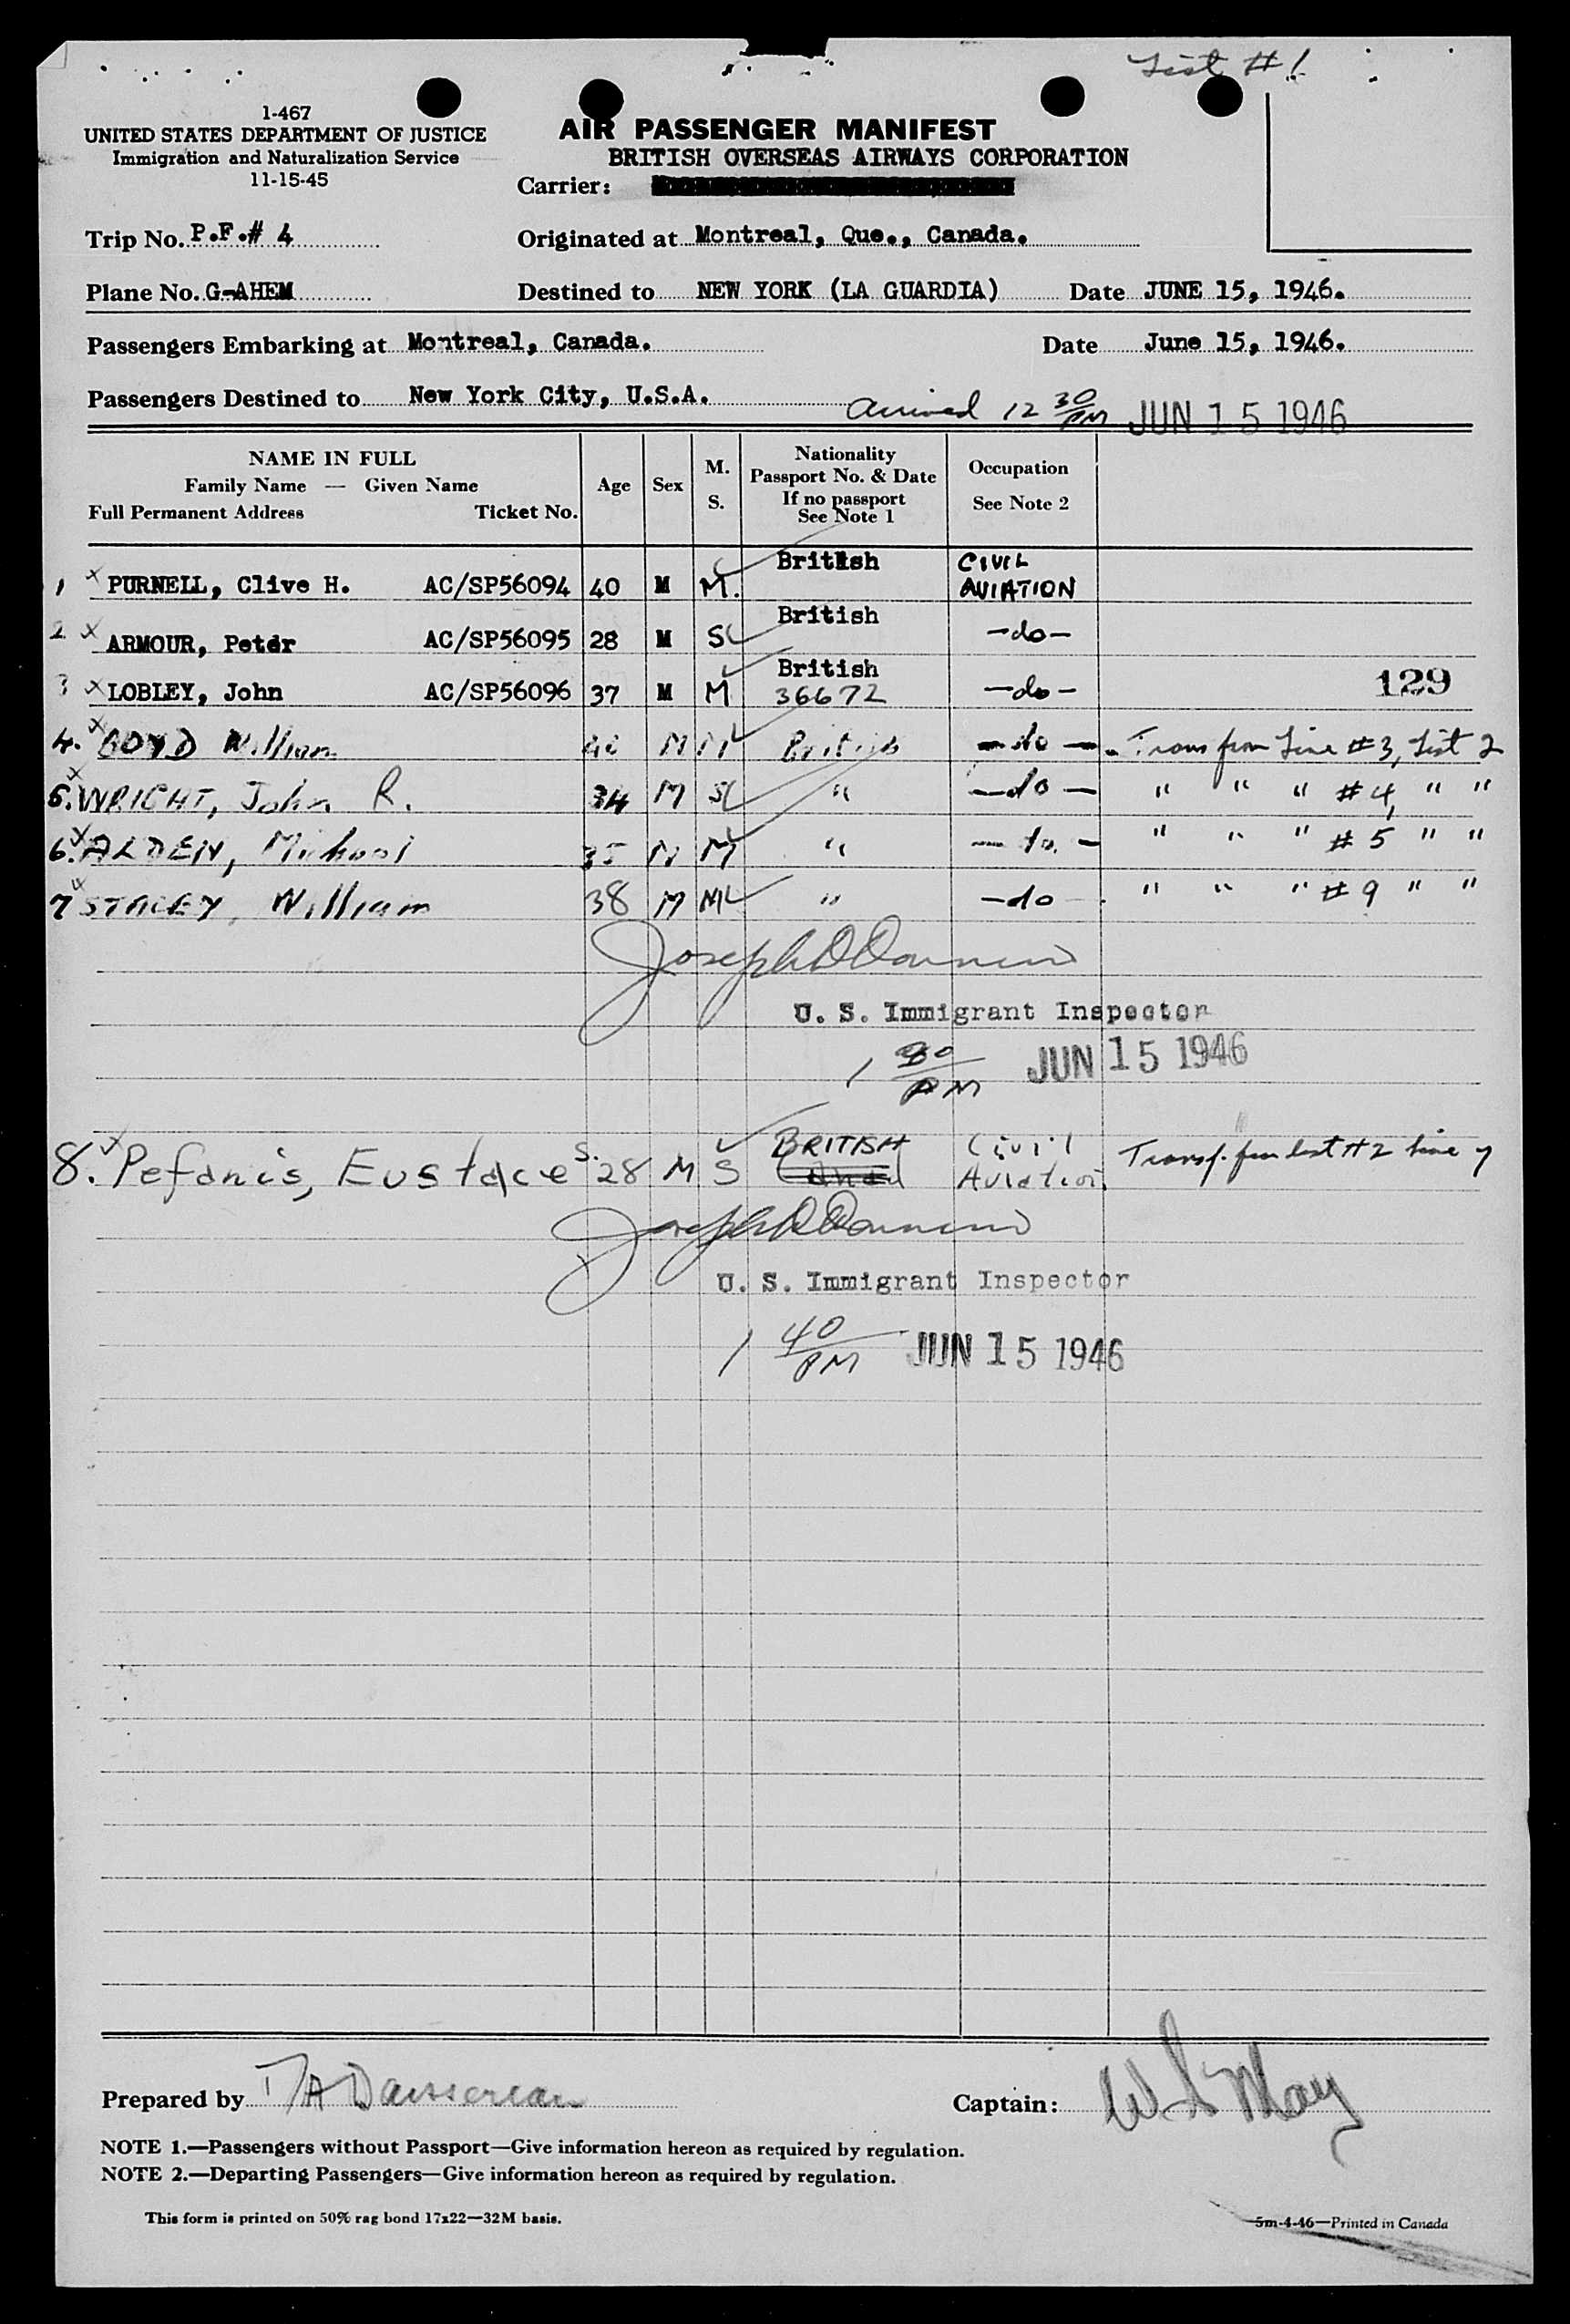 List #1
1-467
UNITED STATES DEPARTMENT OF JUSTICE
Immigration and Naturalization Service
11-15-45
AIR PASSENGER MANIFEST
BRITISH OVERSEAS AIRWAYS CORPORATION
Carrier:
Trip No. P.F.# 4
Originated at Montreal, Que., Canada.
Plane No. G-AHEM
Destined to NEW YORK (LA GUARDIA) Date JUNE 15, 1946.
Passengers Embarking at Montreal, Canada. Date June 15, 1946.
Passengers Destined to New York City, U.S.A.
Arrived 12 30 PM JUN 15 1946
NAME IN FULL
Family Name — Given Name
Full Permanent Address Ticket No.
Age
Sex
M.
S.
Nationality
Passport No. & Date
If no passport
See Note 1
Occupation
See Note 2
1 x PURNELL, Clive H. AC/SP56094 40 M M. British CIVIL AVIATION
2 x ARMOUR, Peter AC/SP56095 28 M S British -do-
3 x LOBLEY, John AC/SP56096 37 M M British 36672 -do- 129
4. x BOYD William M M British -do- Trans from Line #3, List 2
5. x WRIGHT, John R. 34 M S " -do- " " " #4, " "
6. x ALDEN, Michael 35 M M " -do- " " " #5 " "
7 x STACEY, William 38 M M " -do- " " " #9 " "
U. S. Immigrant Inspector
1 30 PM JUN 15 1946
8. Pefanis, Eustace S. 28 M S BRITISH Civil Aviation. Transf. from List #2 line 7
U. S. Immigrant Inspector
1 40 PM JUN 15 1946
Prepared by
Captain: May
NOTE 1.—Passengers without Passport—Give information hereon as required by regulation.
NOTE 2.—Departing Passengers—Give information hereon as required by regulation.
This form is printed on 50% rag bond 17x22—32M basis.
5m-4-46—Printed in Canada